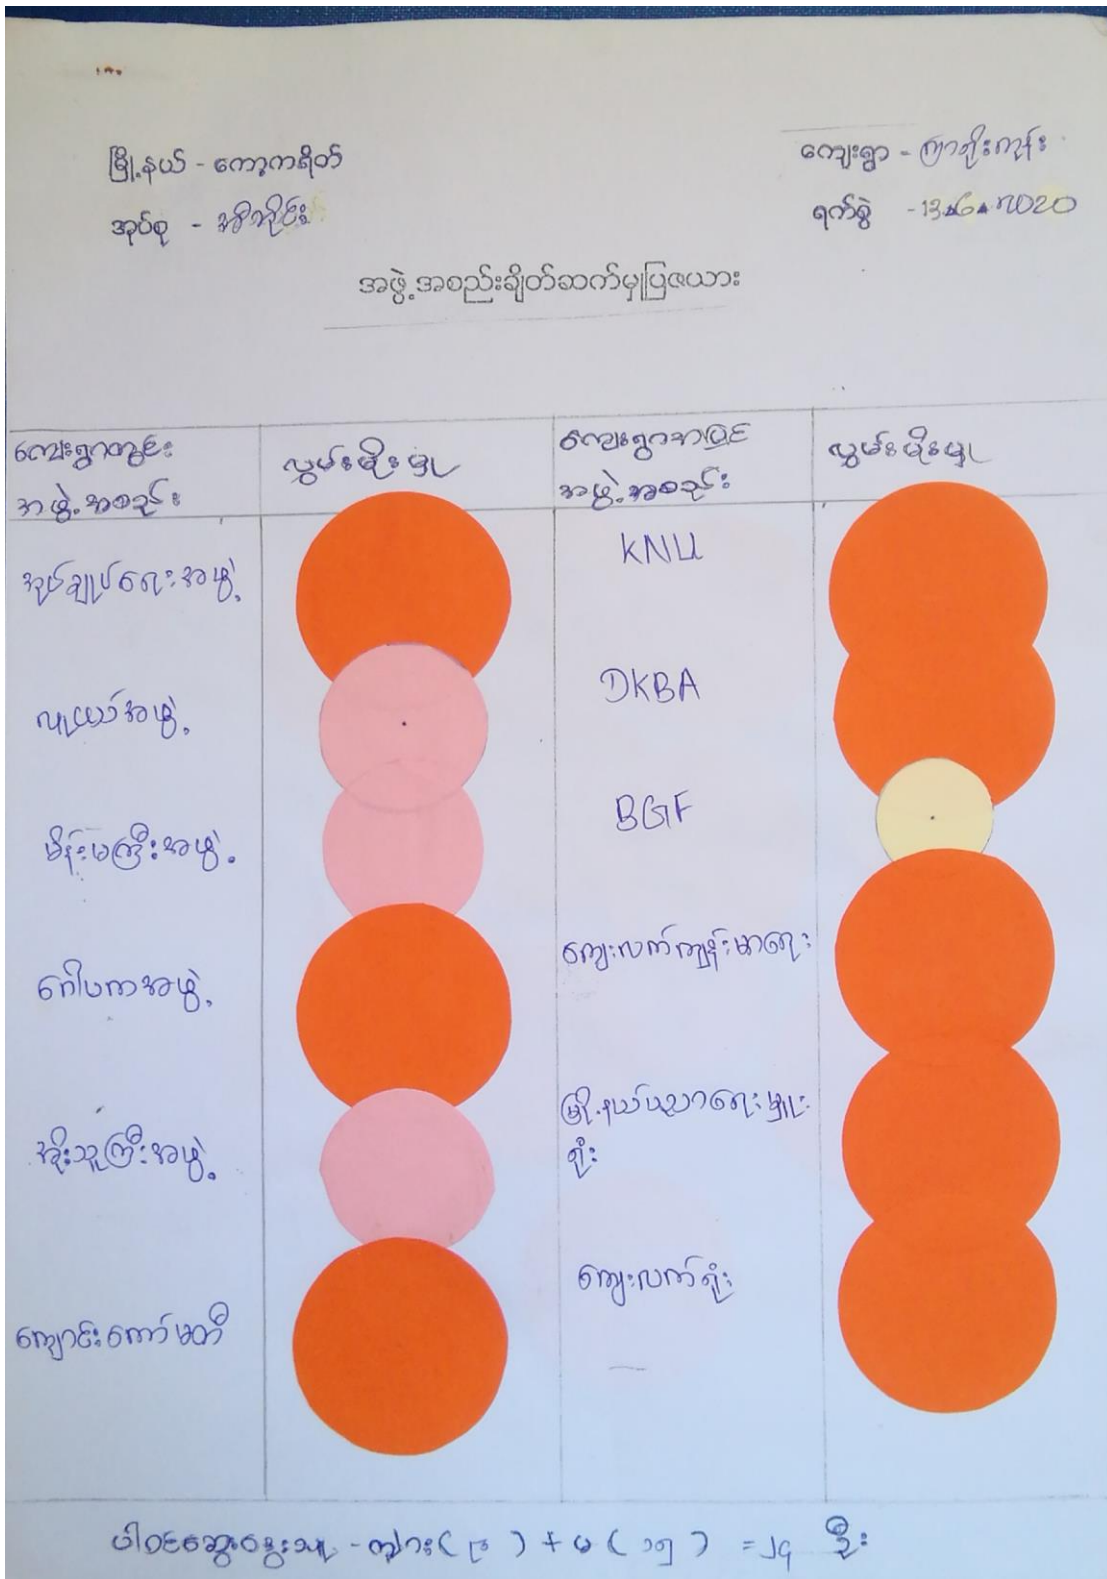 မြို့နယ် - ကော့ကရိတ်
ကျေးရွာ - ကြာအိုးကုန်း
အုပ်စု -
ရက်စွဲ - 13.6.2020
အဖွဲ့အစည်းချိတ်ဆက်မှုပြဇယား
ကျေးရွာတွင်း
အဖွဲ့အစည်း
လွှမ်းမိုးမှု
ကျေးရွာအပြင်
အဖွဲ့အစည်း
လွှမ်းမိုးမှု
အုပ်ချုပ်ရေးအဖွဲ့
KNU
လူငယ်အဖွဲ့
DKBA
မိန်းမကြီးအဖွဲ့
BGF
ဂေါပကအဖွဲ့
ကျေးလက်ကျန်းမာရေး
အိုးသူကြီးအဖွဲ့
မြို့နယ်ပညာရေးမှူး
ရုံး
ကျောင်းကော်မတီ
ကျေးလက်ရုံး
ပါဝင်ဆွေးနွေးသူ - ကျား ( ၉ ) + မ ( ၁၅ ) = ၂၄ ဦး